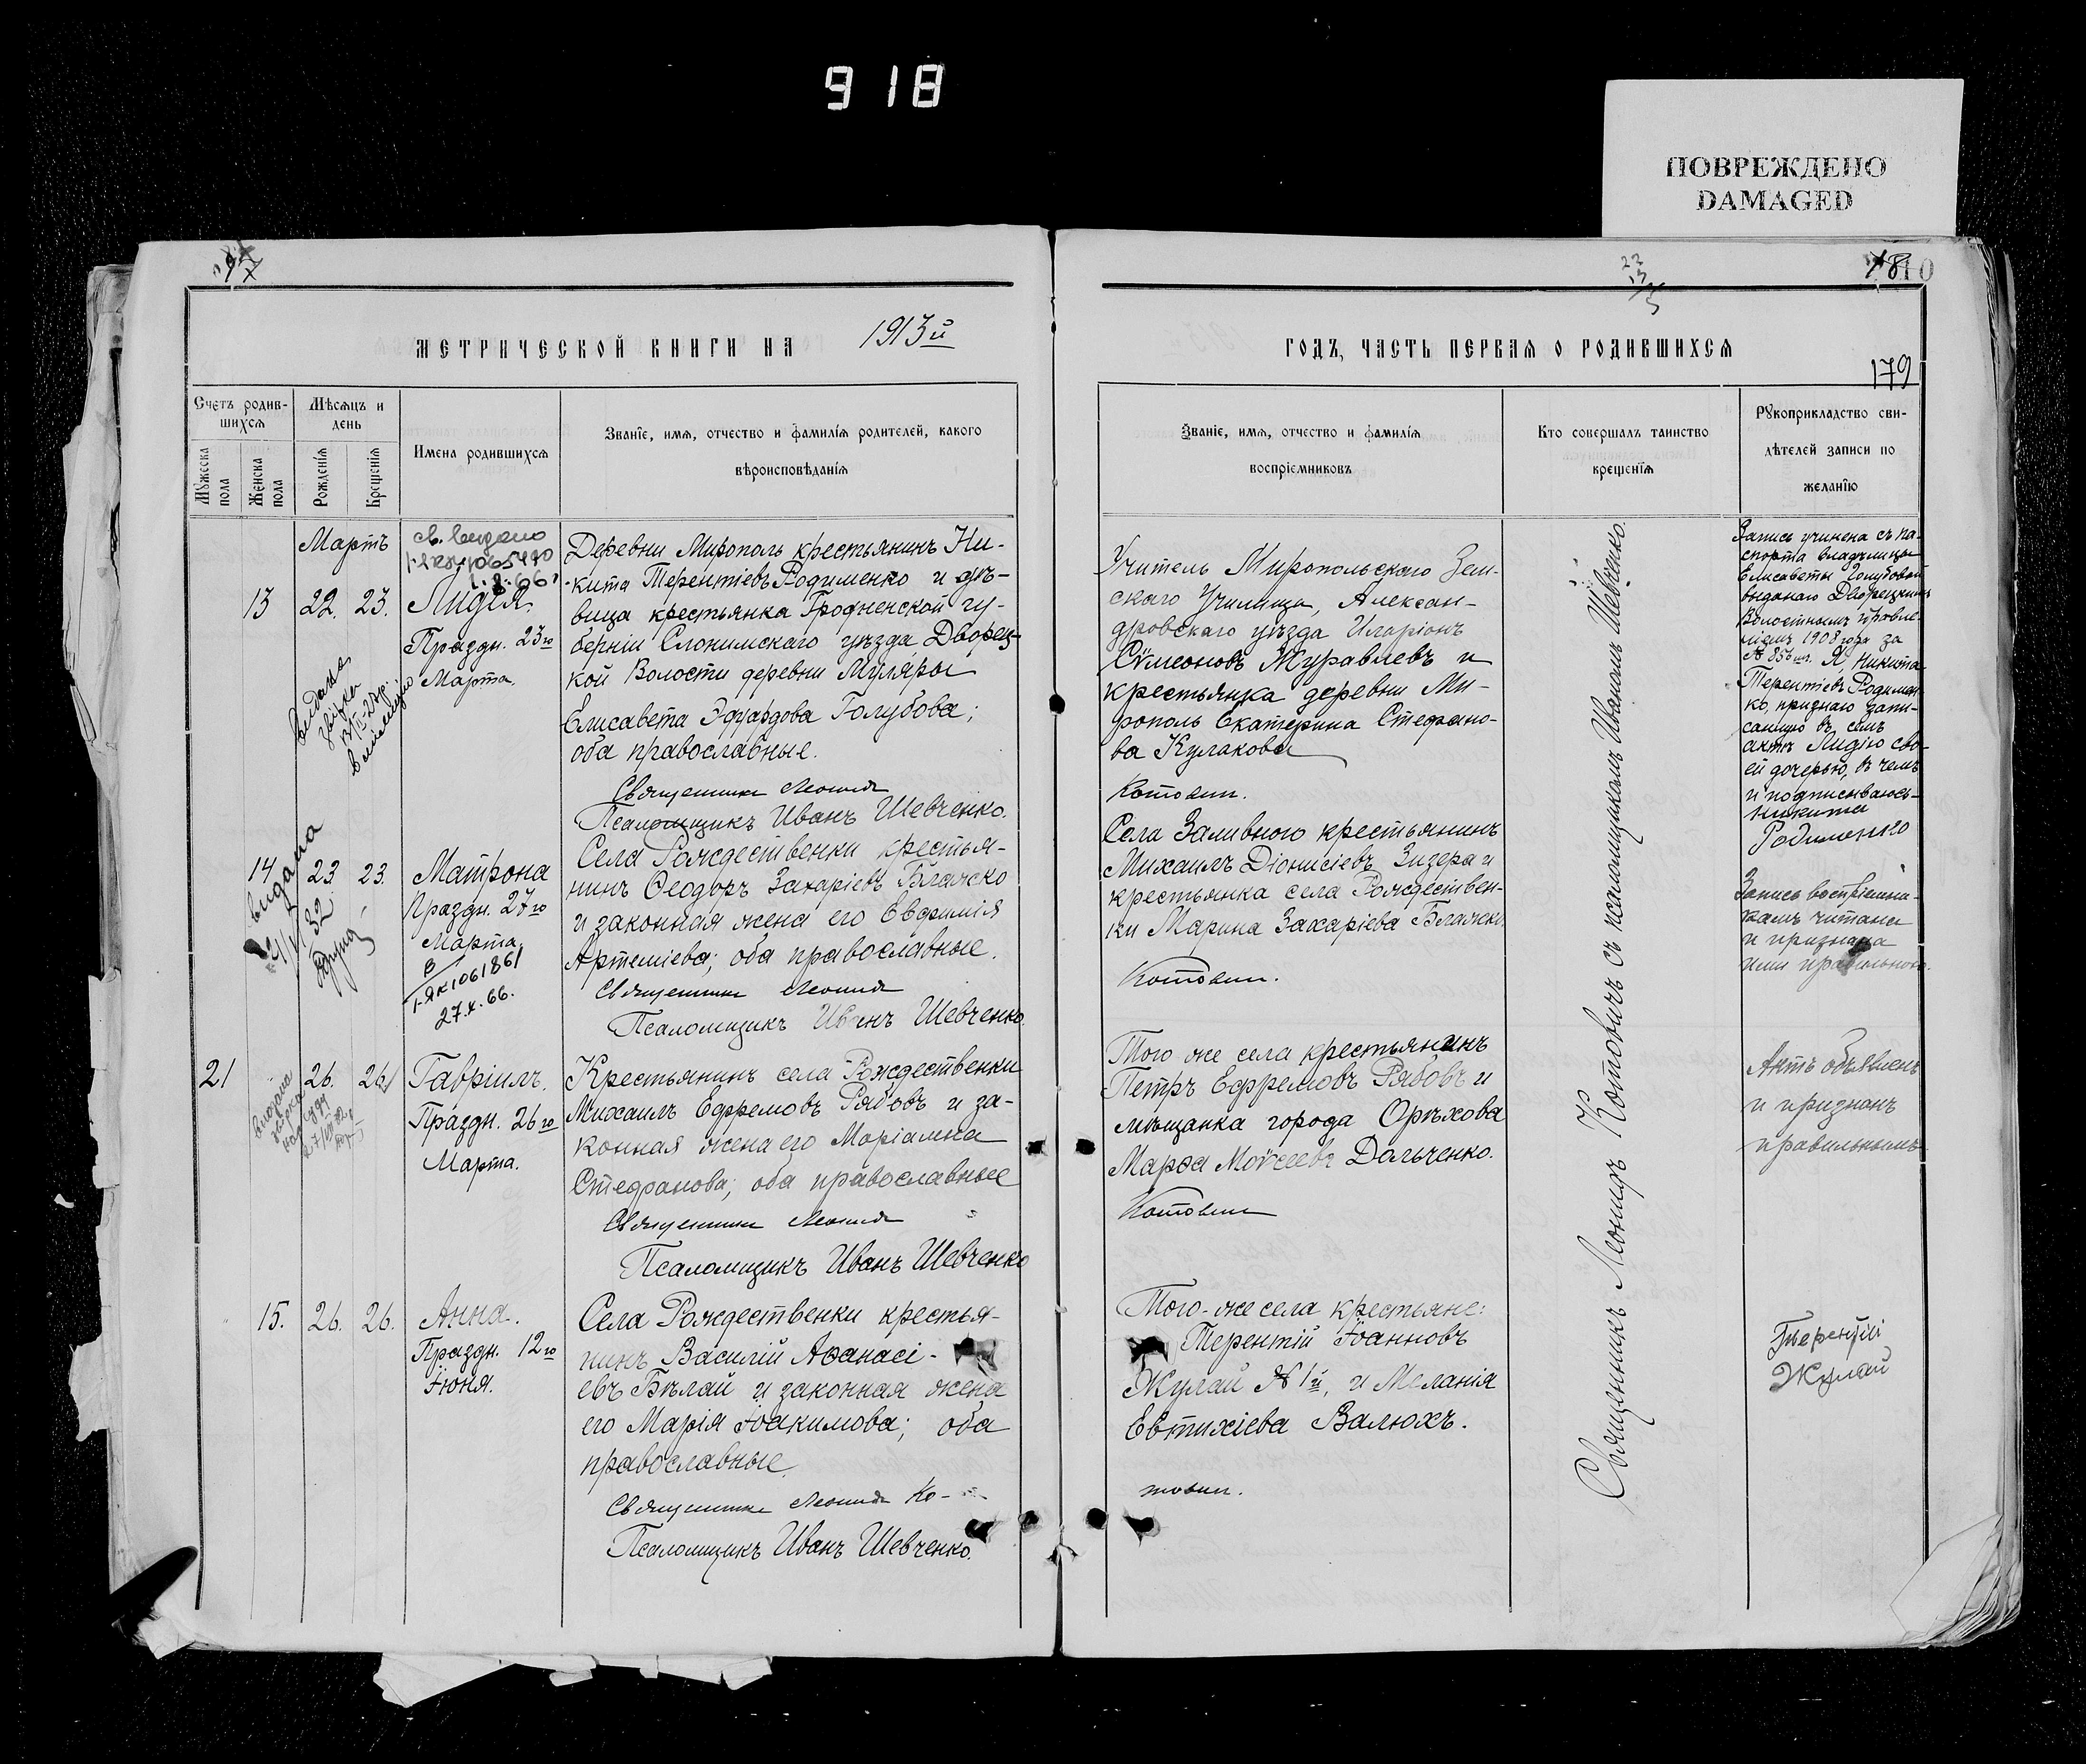 918
ПОВРЕЖДЕНО
DAMAGED
180
МЕТРИЧЕСКОЙ КНИГИ НА 1913й
ГОДЪ, ЧАСТЬ ПЕРВАЯ О РОДИВШИХСЯ
179
Счетъ родив-
шихся
Мѣсяцъ и
день
Мужеска
пола
Женска
пола
Рожденія
Крещенія
Имена родившихся
Званіе, имя, отчество и фамилія родителей, какого
вѣроисповѣданія
Званіе, имя, отчество и фамилія
воспріемниковъ
Кто совершалъ таинство
крещенія
Рукоприкладство сви-
дѣтелей записи по
желанію
Мартъ
св. видано
13 22. 23. Лидія.
Праздн. 23го
Марта.
Деревни Мирополь крестьянинъ Ни-
кита Терентіевъ Родименко и дѣ-
вица крестьянка Гродненской гу-
берніи Слонимскаго уѣзда, Дворец-
кой Волости деревни Муляры
Елисавета Эдуардова Голубова;
оба православные.
Священникъ Леонидъ
Псаломщикъ Иванъ Шевченко.
Учитель Миропольскаго Зем-
скаго Училища, Алексан-
дровскаго уѣзда Иларіонъ
Сѵмеоновъ Журавлевъ и
крестьянка деревни Ми-
рополь Екатерина Стефано-
ва Кулакова
Котовичъ.
Запись учинена съ па-
спорта владѣлицы
Елисаветы Голубовой
выданаго Дворецкимъ
Волостнымъ Правле-
ніемъ 1908 года за
№ 856 Я, Никита
Терентіевъ Родимен-
ко, признаю запи-
санную въ семъ
актѣ Лидію сво-
ей дочерью, въ чемъ
и подписываюсь
Никита
Родименко
14 23. 23. Матрона
Праздн. 27го
Марта.
видана
1-ЯК 1061861
27.X.66.
Села Рождественки крестья-
нинъ Ѳеодоръ Захаріевъ Блажко
и законная жена его Евфимія
Артеміева; оба православные.
Священникъ Леонидъ
Псаломщикъ Иванъ Шевченко.
Села Заливного крестьянинъ
Михаилъ Діонисіевъ Зизера и
крестьянка села Рождествен-
ки Марина Захаріева Блажко.
Котовичъ.
Запись воспріемни-
камъ читана
и признана
ими правильною.
21 26. 26. Гавріилъ.
Праздн. 26го
Марта.
Крестьянинъ села Рождественки
Михаилъ Ефремовъ Рябовъ и за-
конная жена его Маріамна
Стефанова; оба православные
Священникъ Леонидъ
Псаломщикъ Иванъ Шевченко
Того же села крестьянинъ
Петръ Ефремовъ Рябовъ и
мѣщанка города Орѣхова
Марѳа Моѵсеева Дольченко.
Котовичъ
Актъ объявленъ
и признанъ
правильнымъ
15. 26. 26. Анна.
Праздн. 12го
Іюня.
Села Рождественки крестья-
нинъ Василій Аѳанасі-
евъ Бѣлай и законная жена
его Марія Іоакимова; оба
православные.
Священникъ Леонидъ Ко-
Псаломщикъ Иванъ Шевченко.
Того-же села крестьяне:
Терентій Іоанновъ
Жулай № 1й, и Меланія
Евтихіева Валюхъ.
товичъ.
Терентій
Жулай
Священникъ Леонидъ Котовичъ съ псаломщикомъ Иваномъ Шевченко.